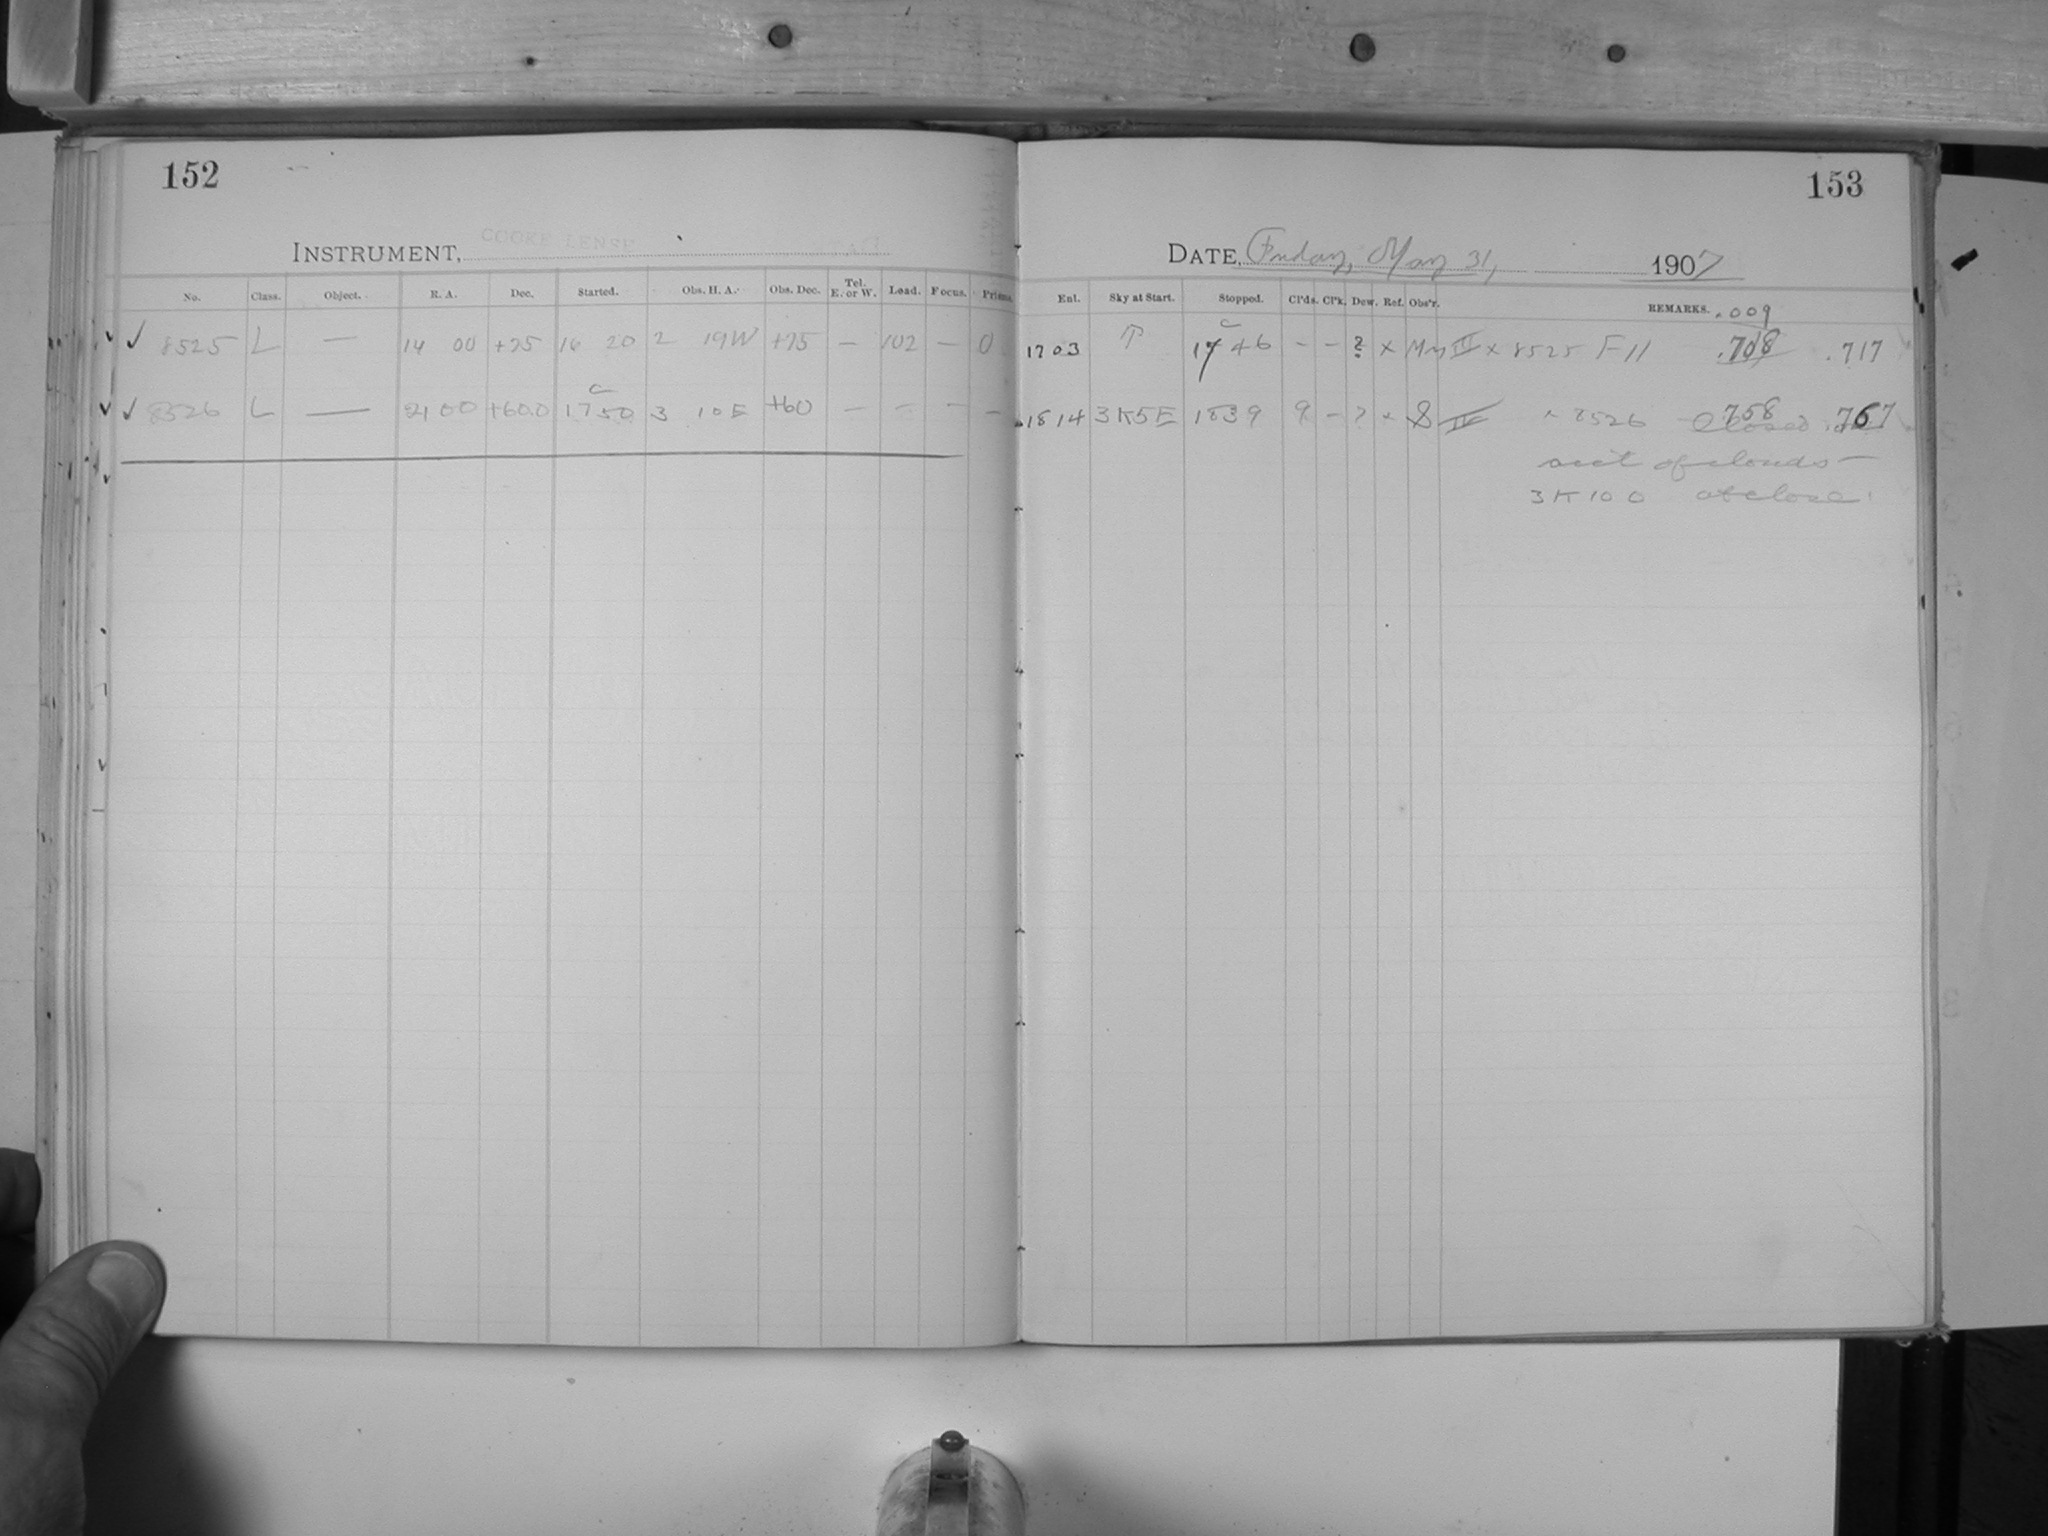 152
INSTRUMENT, COOKE LENSE
No. Class. Object. R. A. Dec. Started. Obs. H. A. Obs. Dec. Tel. E. or W. Load. Focus. Prisms.
✓ 8525 L — 14 00 +75 16 20 2 19W +75 — 102 — 0
✓ 8526 L — 21 00 +60.0 17 50 3 10 E +60 — — — —
153
DATE, Friday, May 31, 1907
Ent. Sky at Start. Stopped. Cl'ds. Cl'k. Dew. Ref. Obs'r. REMARKS. .009
1703 ↑ 17 46 — — ? x x 8525 F 11 .708 .717
18 14 3K5E 1839 9 — ? x S IV 8526 .758 Closed .767
acct of clouds —
3 K 10 0 at close.